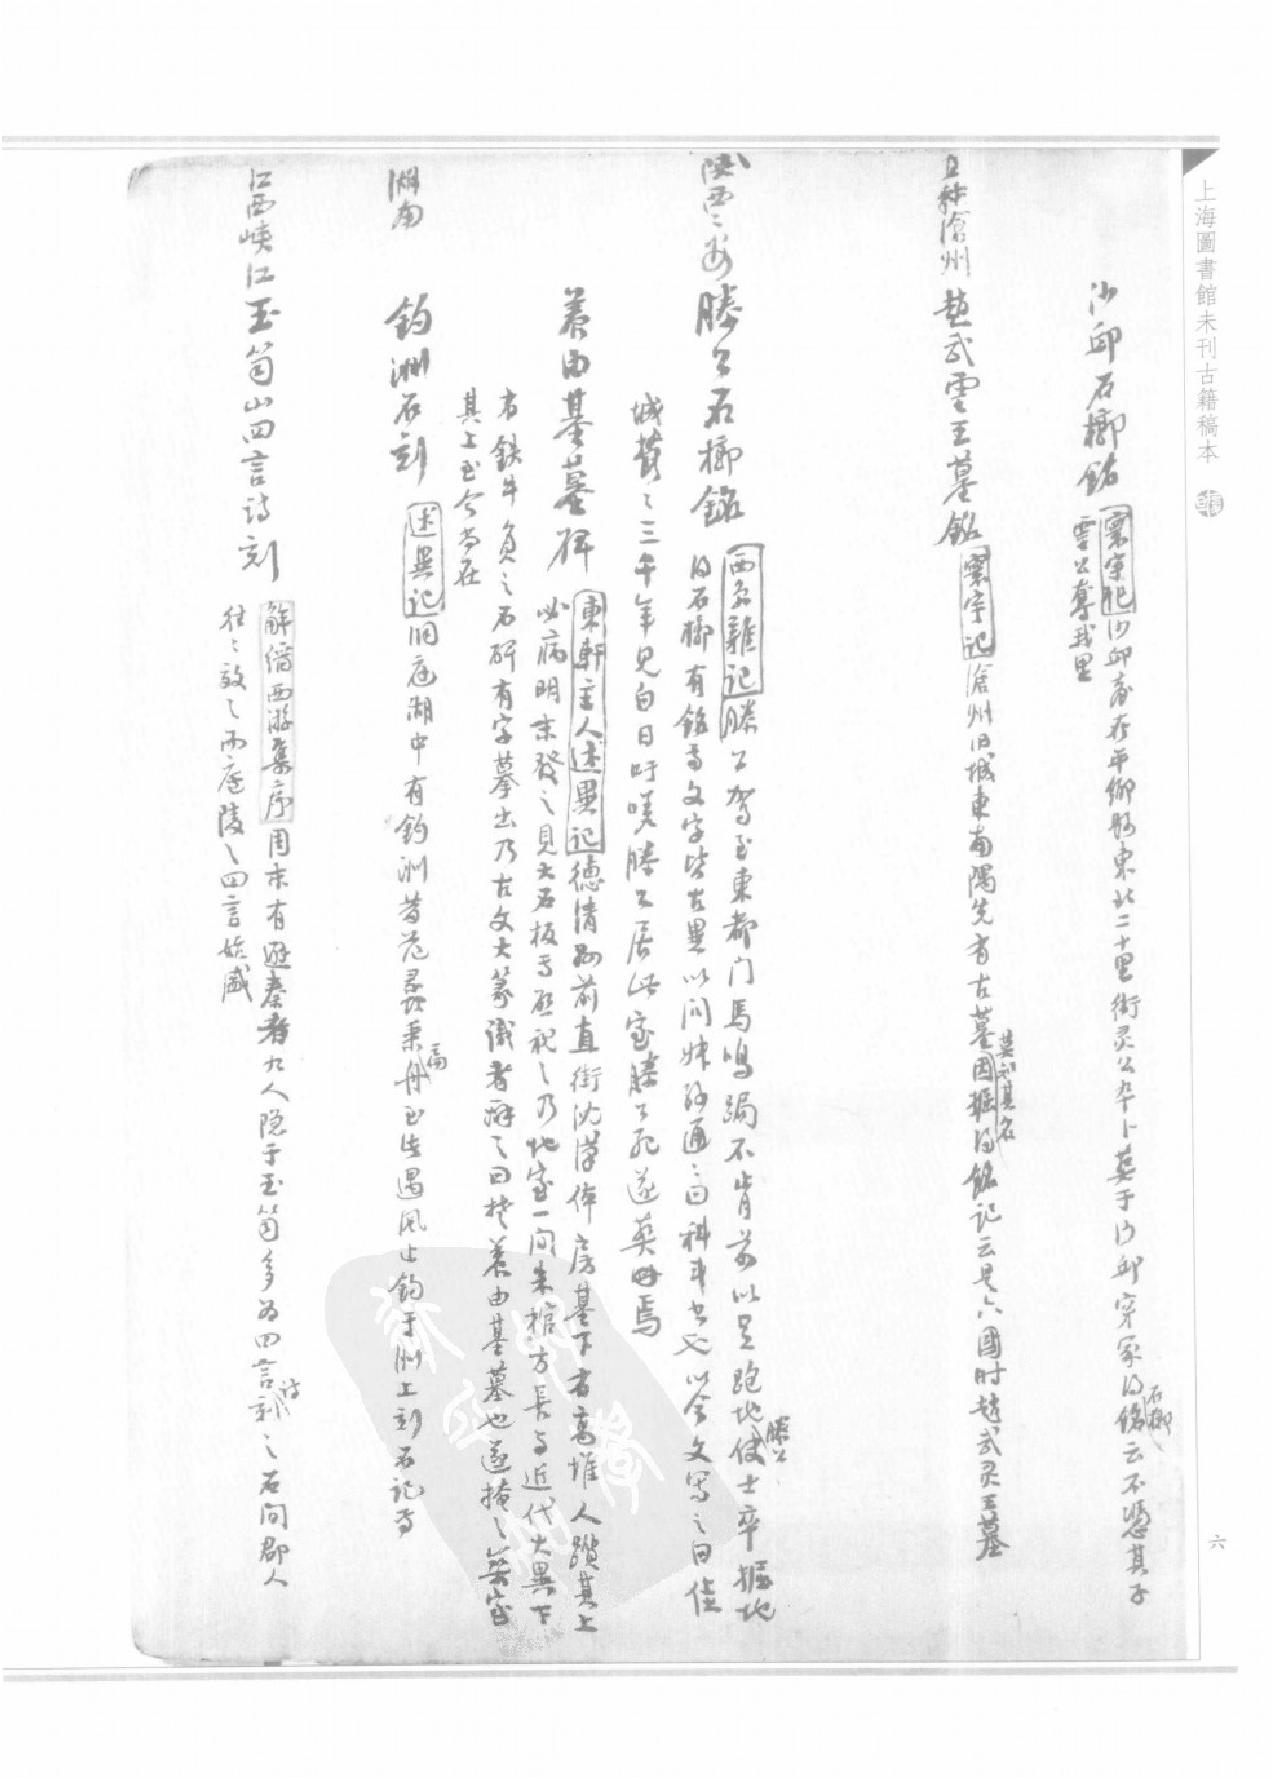 上海圖書館未刊古籍稿本
六
沙邱石槨銘 寰宇記沙邱臺在平鄉縣東北二十里衛灵公卒卜葬于沙邱穿冢得石槨銘云不憑其子
靈公奪我里
直隸滄州 趙武靈王墓銘 寰宇記滄州旧城東南隅先有古墓莫知其名因掘得銘記云是六國时趙武灵王墓
陝西西安 滕公石槨銘 西京雜記滕公駕至東都门馬鳴跼不肯前以足跑地滕公使士卒掘地
得石槨有銘焉文字皆古異以问叔孙通通曰科斗书也以今文寫之曰佳
城鬱鬱三千年見白日吁嗟滕公居此室滕公死遂葬焉
養由基墓碑 東軒主人述異記德清縣前直街沈漢倬房基下有高堆人躓其上
必病明末發之見大石板焉啟視之乃地室一间朱棺方長与近代大異下
有鉄牛負之石碑有字摹出乃古文大篆識者辨之曰楚養由基墓也遂掩之築室
其上至今尚在
湖南 釣洲石刻 述異記洞庭湖中有釣洲昔范蠡乘扁舟至此遇風止釣于洲上刻石记焉
江西峽江 玉笥山四言詩刻 解縉西游集序周末有避秦者九人隐于玉笥多为四言诗刻之石间郡人
往往效之而廬陵之四言始盛